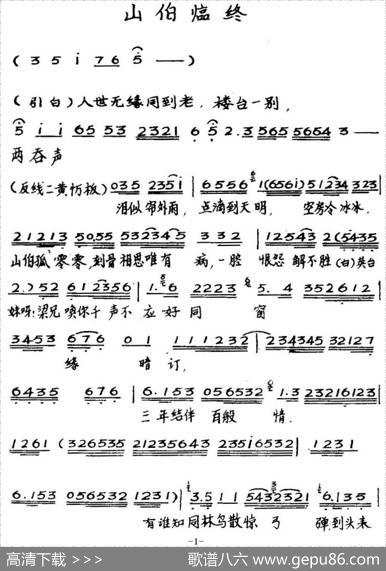 山伯临终
( 3 5 i 7 6 5 —— )
(引白) 人世无缘同到老. 楼台一别,
5 i i 65 53 2321 6 5 2.3 565 5664 3 ——
两吞声
(反线二黄忉板) 035 235 i | 6556 1(6561) 51234 323
泪似帘外雨, 点滴到天明, 空房冷冰冰.
21213 5055 532345 332 | 12543 2(5435
山伯孤零零, 刻骨相思唯有病, 一腔恨怨解不胜 (白) 英台
2.) 52 612356 | 1.6 2223 5. 4 352612
妹呀: 梁兄唤你千声不应好同窗
3453 676 01 111232 | 234345 32127
缘暗订,
6435 676 | 6.153 056532 1.3 23216123
三年结伴百般情.
1261 (326535 21235643 235i6532 | 1231
6.153 056532 1231) | 3.5 11 5432321 6.135
有谁知同林鸟散惊弓弹到头来
-1-
高清下载 >>>
歌谱八六 www.gepu86.com